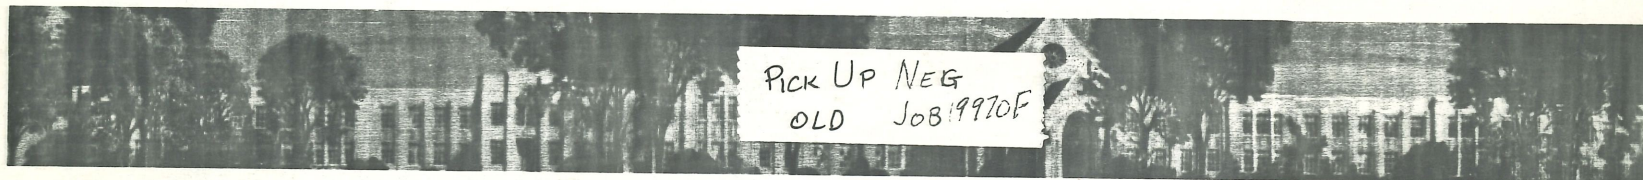 PICK UP NEG
OLD JOB 19970F